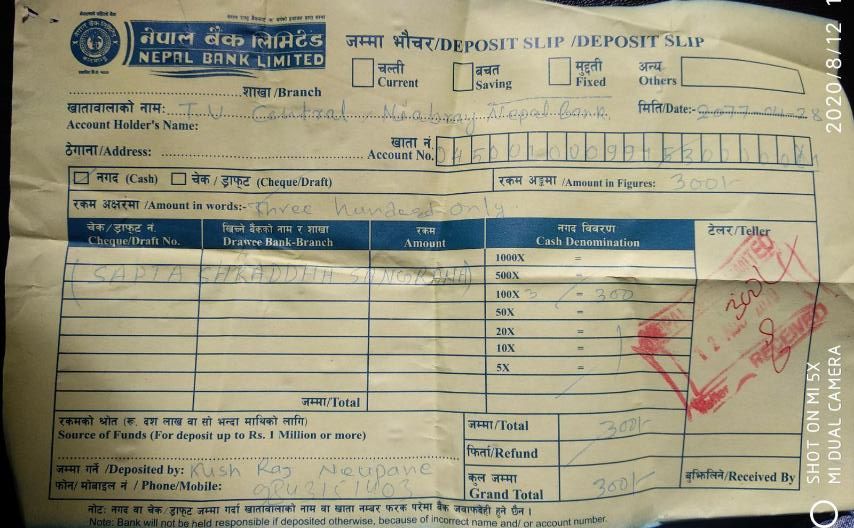 नेपाल बैंक लिमिटेड
NEPAL BANK LIMITED
जम्मा भौचर/DEPOSIT SLIP /DEPOSIT SLIP
चल्ती Current
बचत Saving
मुद्दती Fixed
अन्य Others
शाखा/Branch
खातावालाको नाम: T.U Central Nepal Bank
मिति/Date:- 2077-04-28
Account Holder's Name:
ठेगाना/Address:
खाता नं. Account No.
नगद (Cash) चेक / ड्राफ्ट (Cheque/Draft)
रकम अङ्कमा /Amount in Figures: 300/-
रकम अक्षरमा /Amount in words:- Three hundred only.
चेक/ड्राफ्ट नं. Cheque/Draft No.
खिच्ने बैंकको नाम र शाखा Drawee Bank-Branch
रकम Amount
नगद विवरण Cash Denomination
टेलर/Teller
1000X =
(SAPTA SHRADDHA SANGRAHA) 500X =
100X 3 = 300
50X =
20X =
10X =
5X =
RECEIVED
जम्मा/Total
रकमको श्रोत (रू. दश लाख वा सो भन्दा माथिको लागि)
Source of Funds (For deposit up to Rs. 1 Million or more)
जम्मा/Total 300/-
फिर्ता/Refund
जम्मा गर्ने /Deposited by: Kush Raj Neupane
फोन/ मोबाईल नं / Phone/Mobile:
कूल जम्मा Grand Total 300/-
बुझिलिने/Received By
नोट: नगद वा चेक/ड्राफ्ट जम्मा गर्दा खातावालाको नाम वा खाता नम्बर फरक परेमा बैंक जवाफदेही हुने छैन ।
Note: Bank will not be held responsible if deposited otherwise, because of incorrect name and/ or account number.
2020/8/12 1
SHOT ON MI 5X
MI DUAL CAMERA